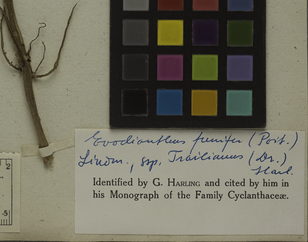 Evodianthus funifer (Poit.)
Lindm., ssp. Trailianus (Dr.)
Harl.
Identified by G. HARLING and cited by him in
his Monograph of the Family Cyclanthaceæ.